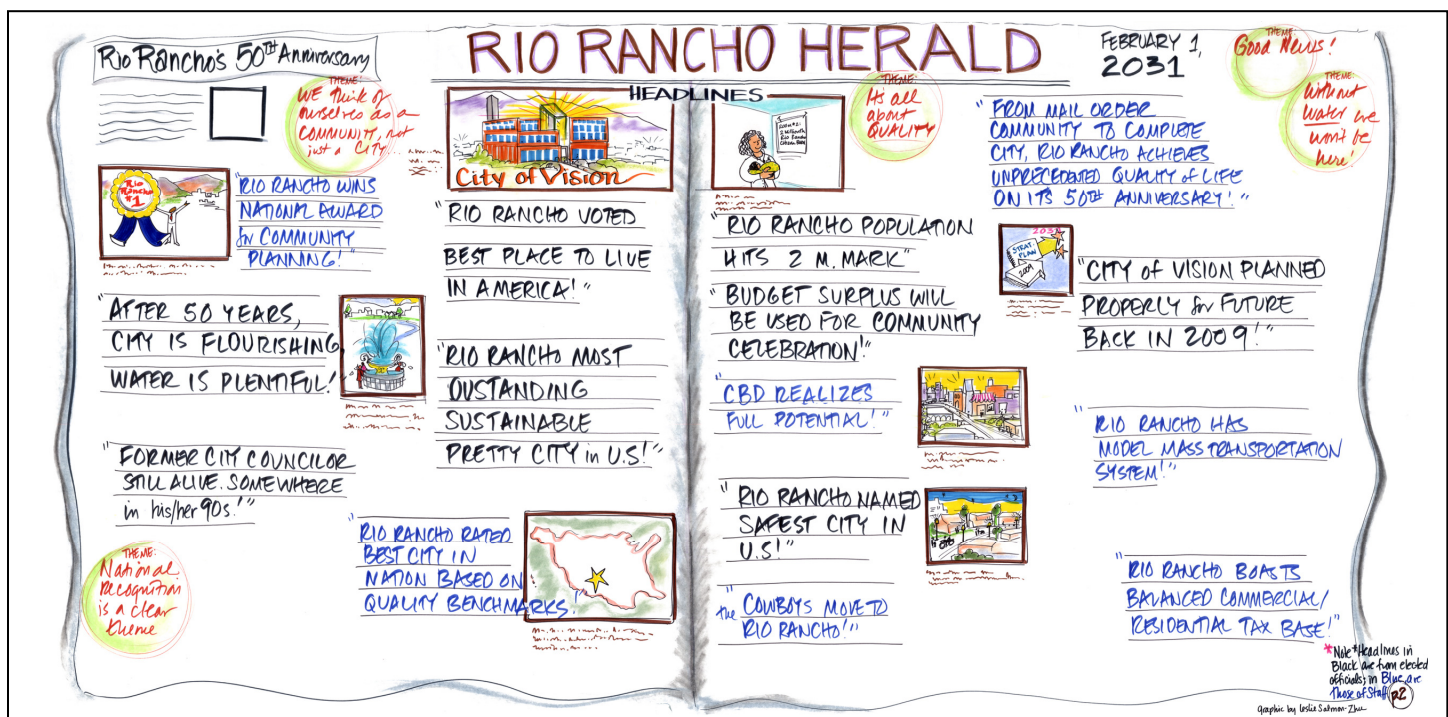 Rio Rancho's 50TH Anniversary
RIO RANCHO HERALD
FEBRUARY 1,
2031
HEADLINES
THEME:
WE Think of
ourselves as a
COMMUNITY, not
just a CITY
Rio
Rancho
#1
"RIO RANCHO WINS
NATIONAL AWARD
for COMMUNITY
PLANNING!"
"AFTER 50 YEARS,
CITY IS FLOURISHING,
WATER IS PLENTIFUL!"
"FORMER CITY COUNCILOR
STILL ALIVE. SOMEWHERE
in his/her 90s!"
THEME:
National
recognition
is a clear
theme
City of Vision
"RIO RANCHO VOTED
BEST PLACE TO LIVE
IN AMERICA!"
"RIO RANCHO MOST
OUSTANDING
SUSTAINABLE
PRETTY CITY in U.S!"
"RIO RANCHO RATED
BEST CITY IN
NATION BASED ON
QUALITY BENCHMARKS!"
THEME:
It's all
about
QUALITY
"RIO RANCHO POPULATION
HITS 2 M. MARK"
"BUDGET SURPLUS WILL
BE USED FOR COMMUNITY
CELEBRATION!"
"CBD REALIZES
FULL POTENTIAL!"
"RIO RANCHO NAMED
SAFEST CITY IN
U.S!"
"the COWBOYS MOVE TO
RIO RANCHO!"
THEME:
Good News!
THEME:
Without
water we
won't be
here!
"FROM MAIL ORDER
COMMUNITY TO COMPLETE
CITY, RIO RANCHO ACHIEVES
UNPRECEDENTED QUALITY of LIFE
ON ITS 50TH ANNIVERSARY!"
2031
STRAT.
PLAN
2009
"CITY of VISION PLANNED
PROPERLY for FUTURE
BACK IN 2009!"
"RIO RANCHO HAS
MODEL MASS TRANSPORTATION
SYSTEM!"
"RIO RANCHO BOASTS
BALANCED COMMERCIAL/
RESIDENTIAL TAX BASE!"
*Note*Headlines in
Black are from elected
officials; in Blue are
Those of Staff p2
Graphic by Leslie Salmon-Zhu